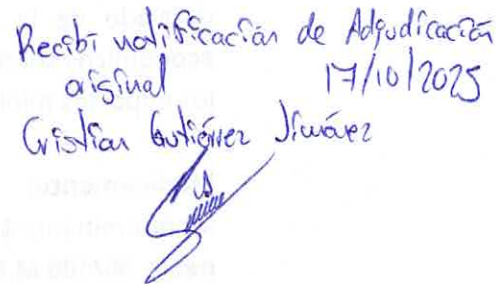 Recibí notificación de Adjudicación
original 17/10/2025
Cristian Gutiérrez Jiménez